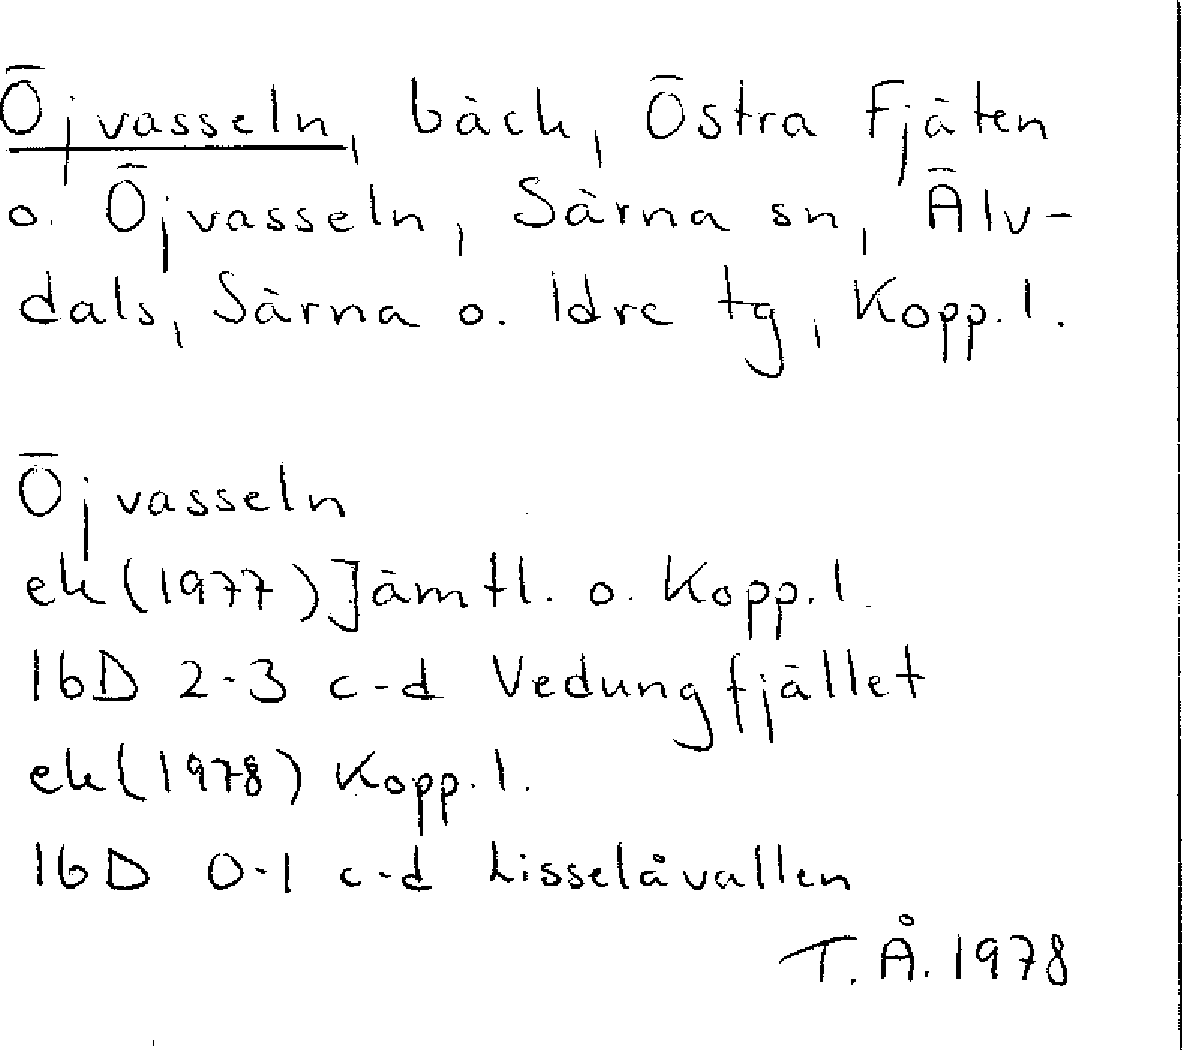 Öjvasseln, bäck, Östra Fjäten
o. Öjvasseln, Särna sn, Älv-
dals, Särna o. Idre tg, Kopp. l.
Öjvasseln
ek (1977) Jämtl. o. Kopp. l.
16D 2-3 c-d Vedungfjället
ek (1978) Kopp. l.
16D 0-1 c-d Lisselåvallen
T. Å. 1978